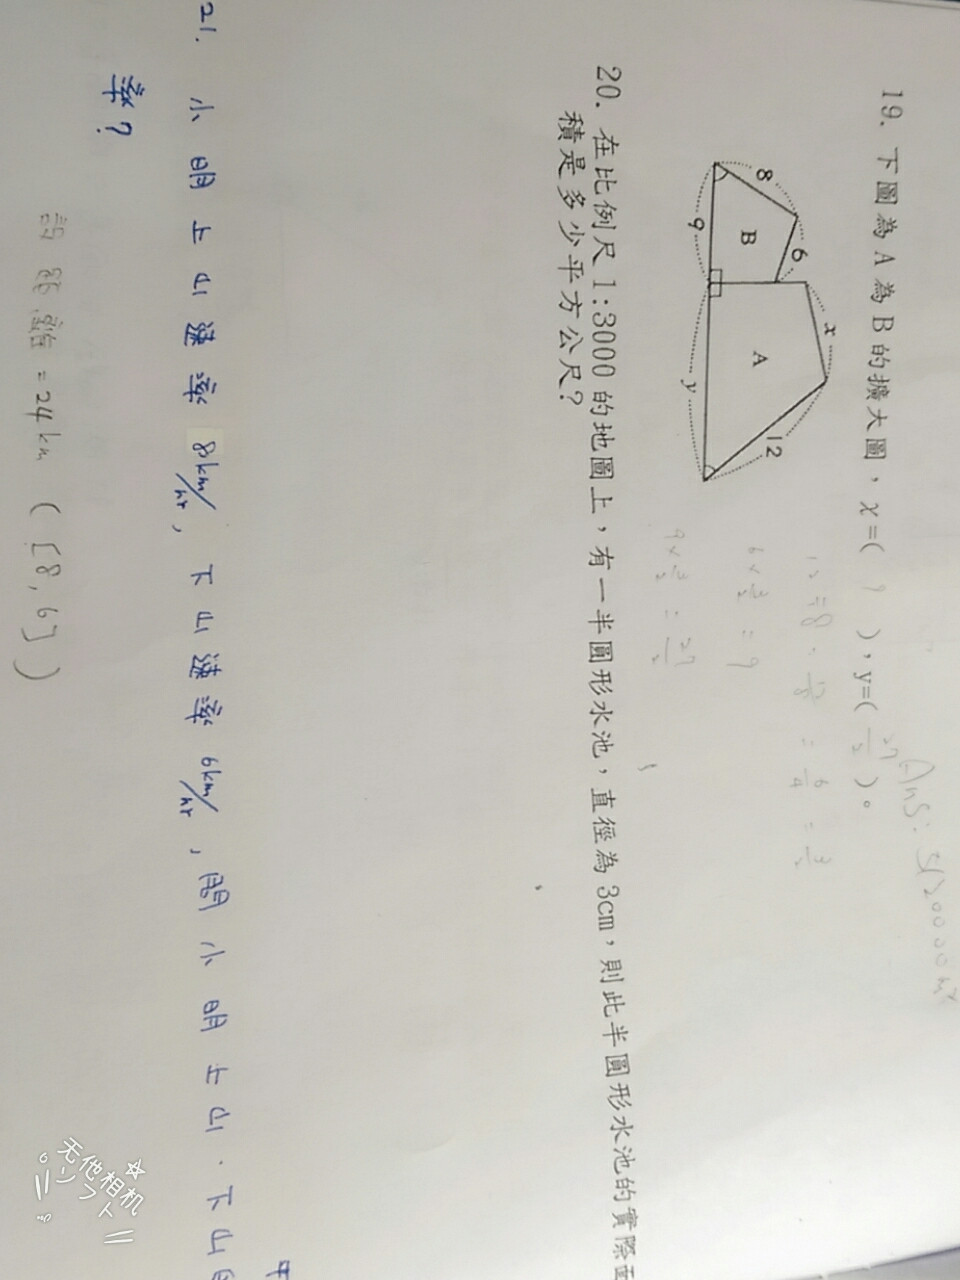 Ans:
19. 下圖為A為B的擴大圖，x=( 9 )，y=( 27/2 )。
x
12
A
y
6
B
8
9
12÷8 = 6/4 = 3/2
6×3/2 = 9
9×3/2 = 27/2
20. 在比例尺1:3000的地圖上，有一半圓形水池，直徑為3cm，則此半圓形水池的實際面
積是多少平方公尺?
21. 小明上山速率 8km/hr, 下山速率 6km/hr, 問小明上山、下山
率?
設路程=24km ([8,6])
无他相机
ソフト